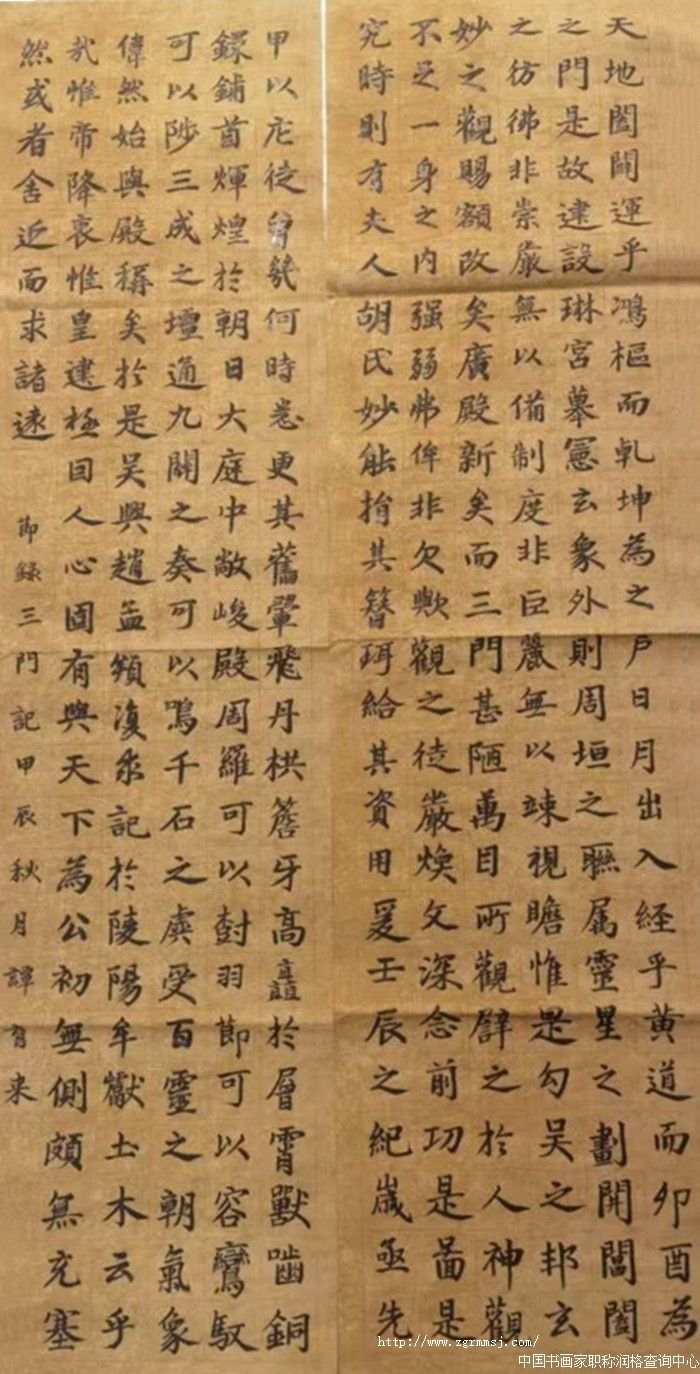 天地闔闢運乎鴻樞而乹坤為之戶日月出入経乎黄道而卯酉為
之門是故建設琳宮摹憲玄象外則周垣之聮属靈星之劃開闔闔
之彷彿非崇嚴無以備制度非巨麗無以竦視瞻惟是勾吴之邦玄
妙之觀賜額改矣廣殿新矣而三門甚陋萬目所觀譬之於人神觀
不足一身之内强弱弗侔非欠歟觀之徒嚴煥文深念前功是啚是
究時則有夫人胡氏妙能捐其簪珥給其資用爰壬辰之紀歲亟先
甲以庀徒曾幾何時悉更其舊翬飛丹栱簷牙高矗於層霄獸嚙銅
鐶鋪首輝煌於朝日大庭中敞峻殿周羅可以尌羽節可以容鸞馭
可以陟三成之壇通九關之奏可以鳴千石之虡受百靈之朝氣象
偉然始與殿稱矣於是吴興趙孟頫復求記於陵陽牟巘土木云乎
㦲惟帝降衷惟皇建極囙人心固有與天下為公初無側頗無充塞
然或者舍近而求諸逺
節録三門記甲辰秋月譚有来
http://www.zgrmmsj.com/
中国书画家职称润格查询中心